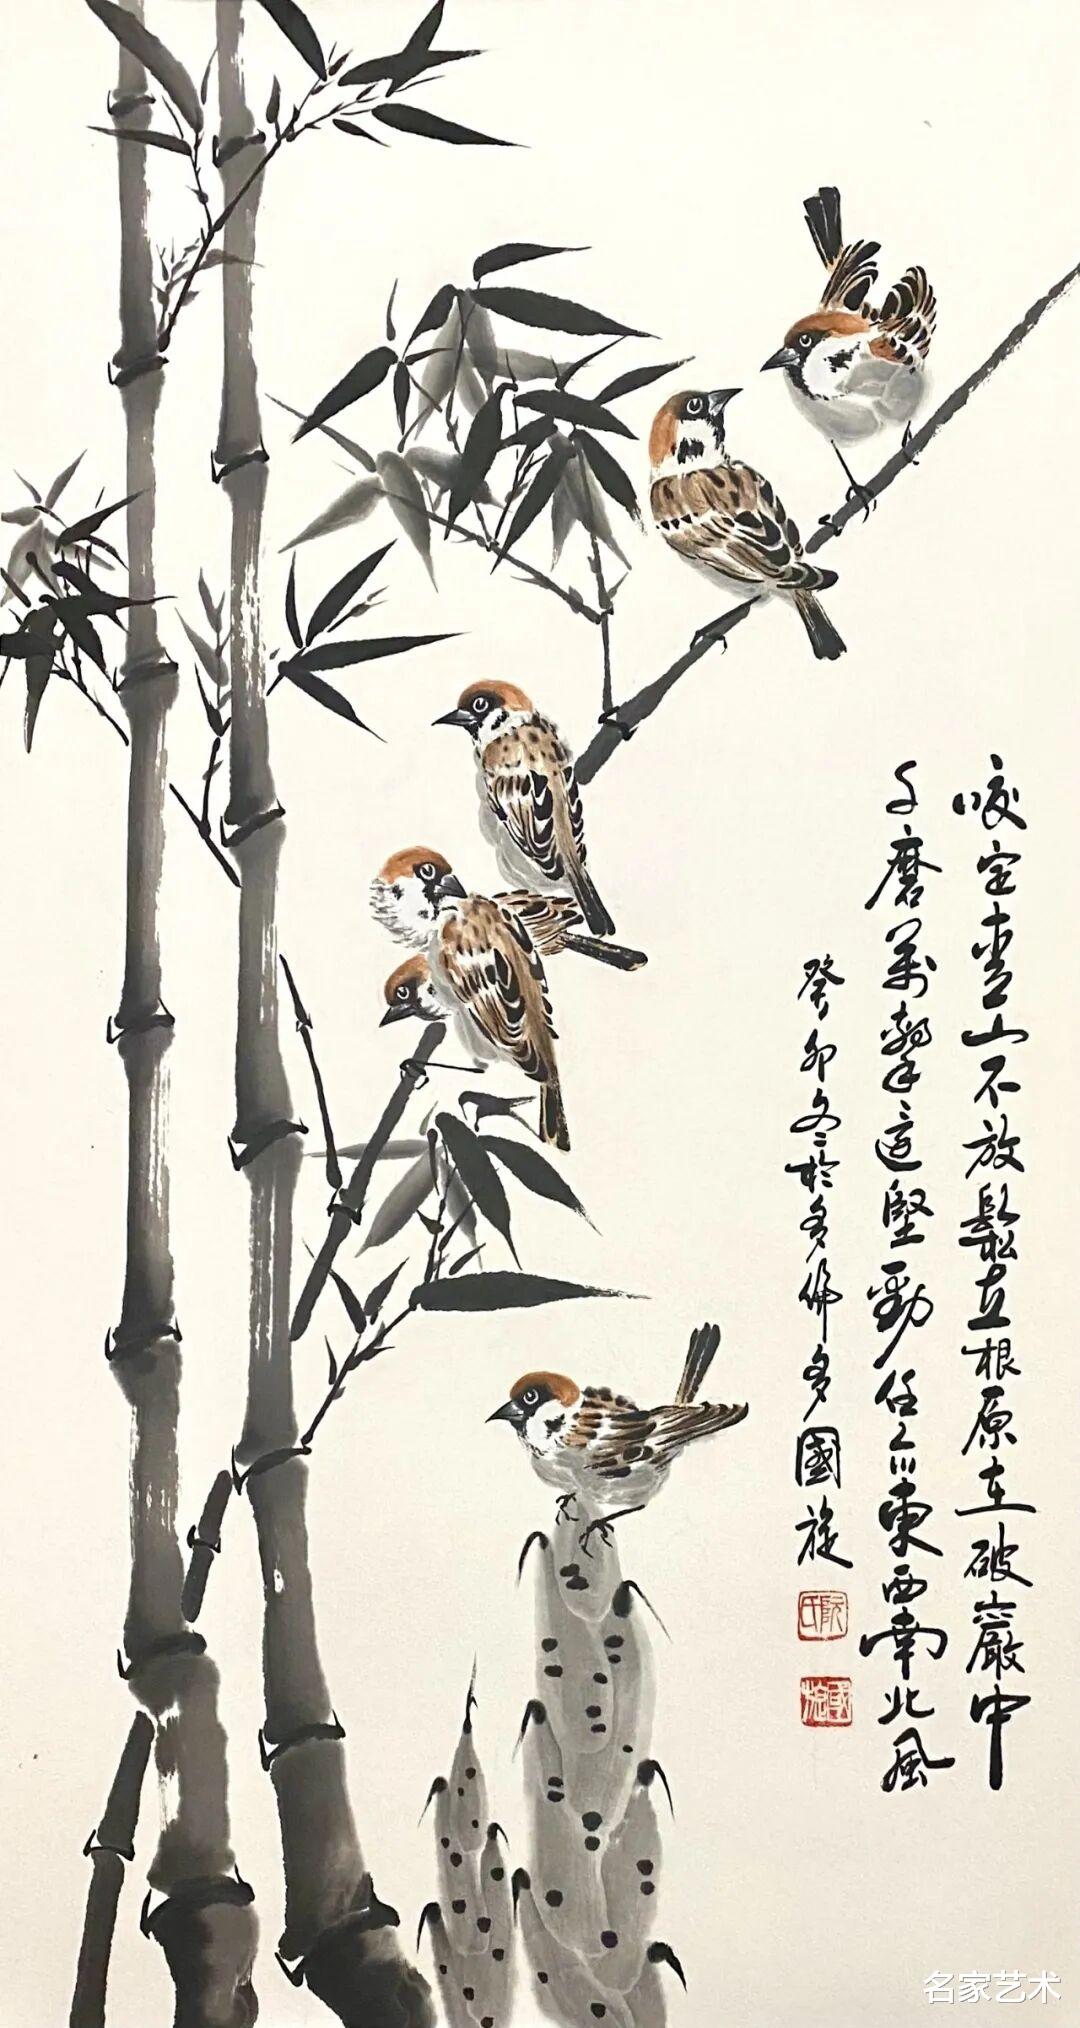 咬定青山不放鬆立根原在破巖中
千磨萬擊還堅勁任尔東西南北風
癸卯冬於多倫多國旋
阮氏
國旋
名家艺术